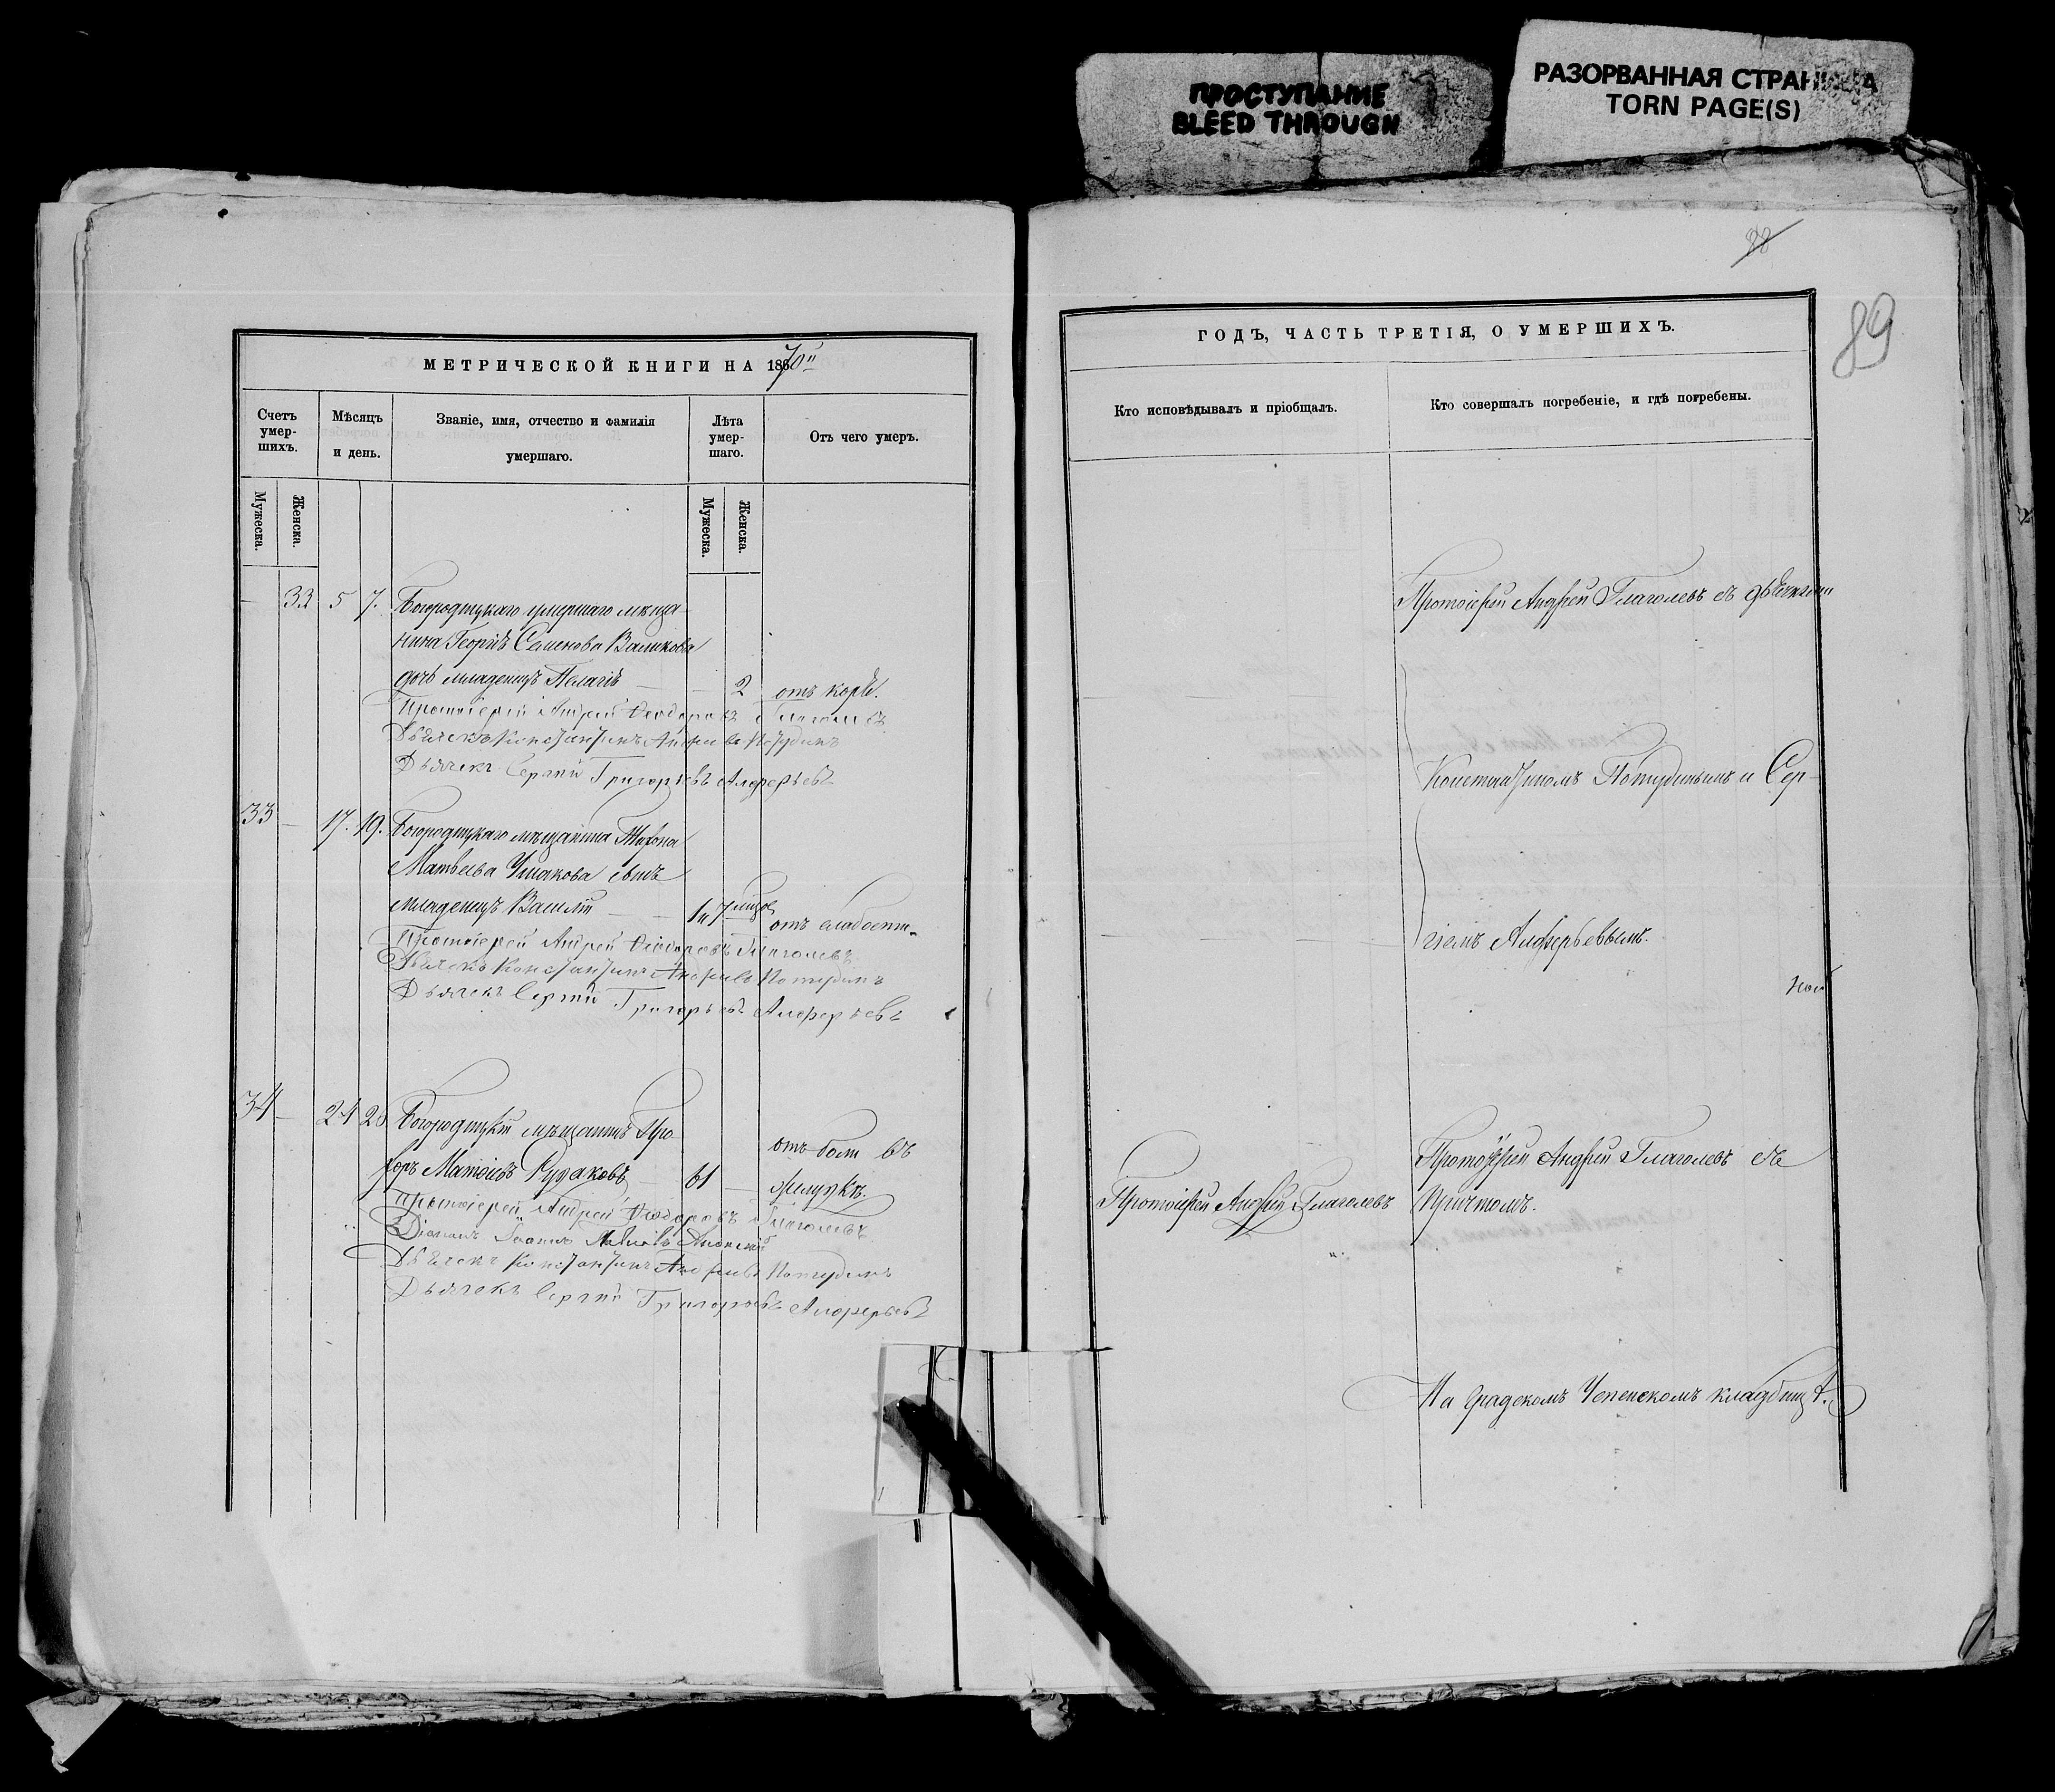 ПРОСТУПАНИЕ
BLEED THROUGH
РАЗОРВАННАЯ СТРАНИЦА
TORN PAGE(S)
88
89
МЕТРИЧЕСКОЙ КНИГИ НА 1870
Счетъ умер-шихъ.
Мѣсяцъ и день.
Званіе, имя, отчество и фамилія умершаго.
Лѣта умер-шаго.
Отъ чего умеръ.
Мужеска.
Женска.
Мужеска.
Женска.
33 5 7. Богородицкаго умершаго мѣща-
нина Георгія Семенова Валикова
дочь младенецъ Пелагія 2 отъ кори.
Протоіерей Андрей Ѳеодоровъ Глаголевъ
Дьячекъ Константинъ Потудинъ
Дьячекъ Сергій Григорьевъ Алферьевъ
33 17. 19. Богородицкаго мѣщанина Тихона
Матвѣева Ушакова сынъ
младенецъ Василій 1 7 отъ слабости.
Протоіерей Андрей Ѳеодоровъ Глаголевъ
Дьячекъ Константинъ Потудинъ
Дьячекъ Сергій Григорьевъ Алферьевъ
34 24 Богородицкій мѣщанинъ Про-
хоръ Рудаковъ 61 отъ боли въ
желудкѣ.
Протоіерей Андрей Ѳеодоровъ Глаголевъ
Діаконъ Іоаннъ
Дьячекъ Константинъ Потудинъ
Дьячекъ Сергій Григорьевъ Алферьевъ
ГОДЪ, ЧАСТЬ ТРЕТІЯ, О УМЕРШИХЪ.
Кто исповѣдывалъ и пріобщалъ.
Кто совершалъ погребеніе, и гдѣ погребены.
Протоіерей Андрей Глаголевъ съ дьячками
Константиномъ Потудинымъ и Сер-
гіемъ Алферьевымъ.
Протоіерей Андрей Глаголевъ
Протоіерей Андрей Глаголевъ съ
причтомъ.
На градскомъ кладбищѣ.